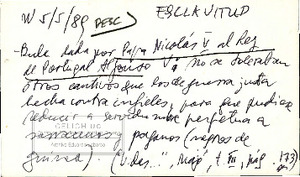 W 5/5/89 DESC) ESCLAVITUD
- Bula dada por Papa Nicolás V al Rey
de Portugal Alfonso V: no se toleraban
otros cautivos que los de guerra justa
hecha contra infieles, para que pudiera
reducir a servidumbre perpetua a
sarracenos y paganos (negros de
guinea) (V. des.", t. III, pág. 173)